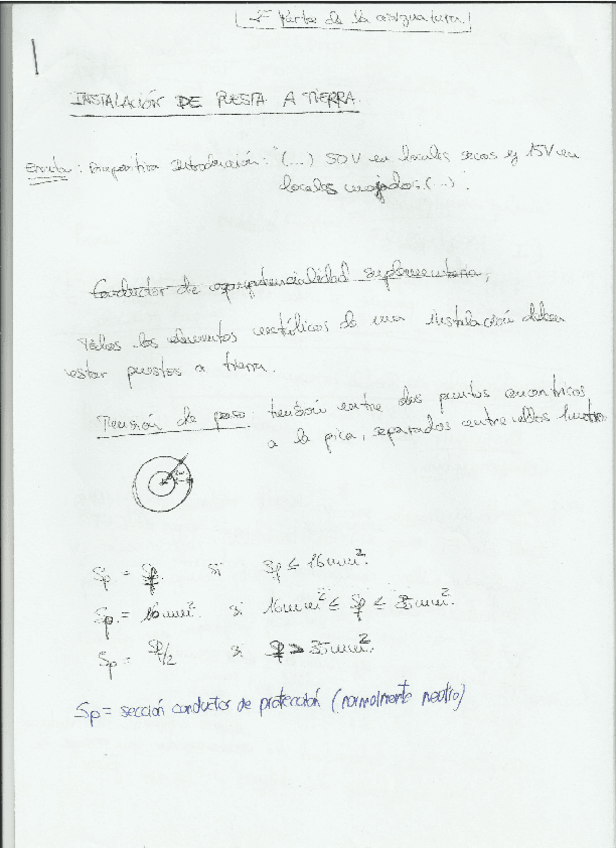 2ª Parte de la asignatura
INSTALACIÓN DE PUESTA A TIERRA.
Errata: Diapositiva introducción: "(...) 50V en locales secos y 15V en
locales mojados (...)".
Conductor de equipotencialidad suplementaria,
Todos los elementos metálicos de una instalación deben
estar puestos a tierra.
Tensión de paso: tensión entre dos puntos concéntricos
a la pica, separados entre ellos 1 metro
Sp = Sf si Sf ≤ 16mm².
Sp = 16mm² si 16mm² ≤ Sf ≤ 35mm².
Sp = Sf/2 si Sf > 35mm².
Sp = sección conductor de protección (normalmente neutro)